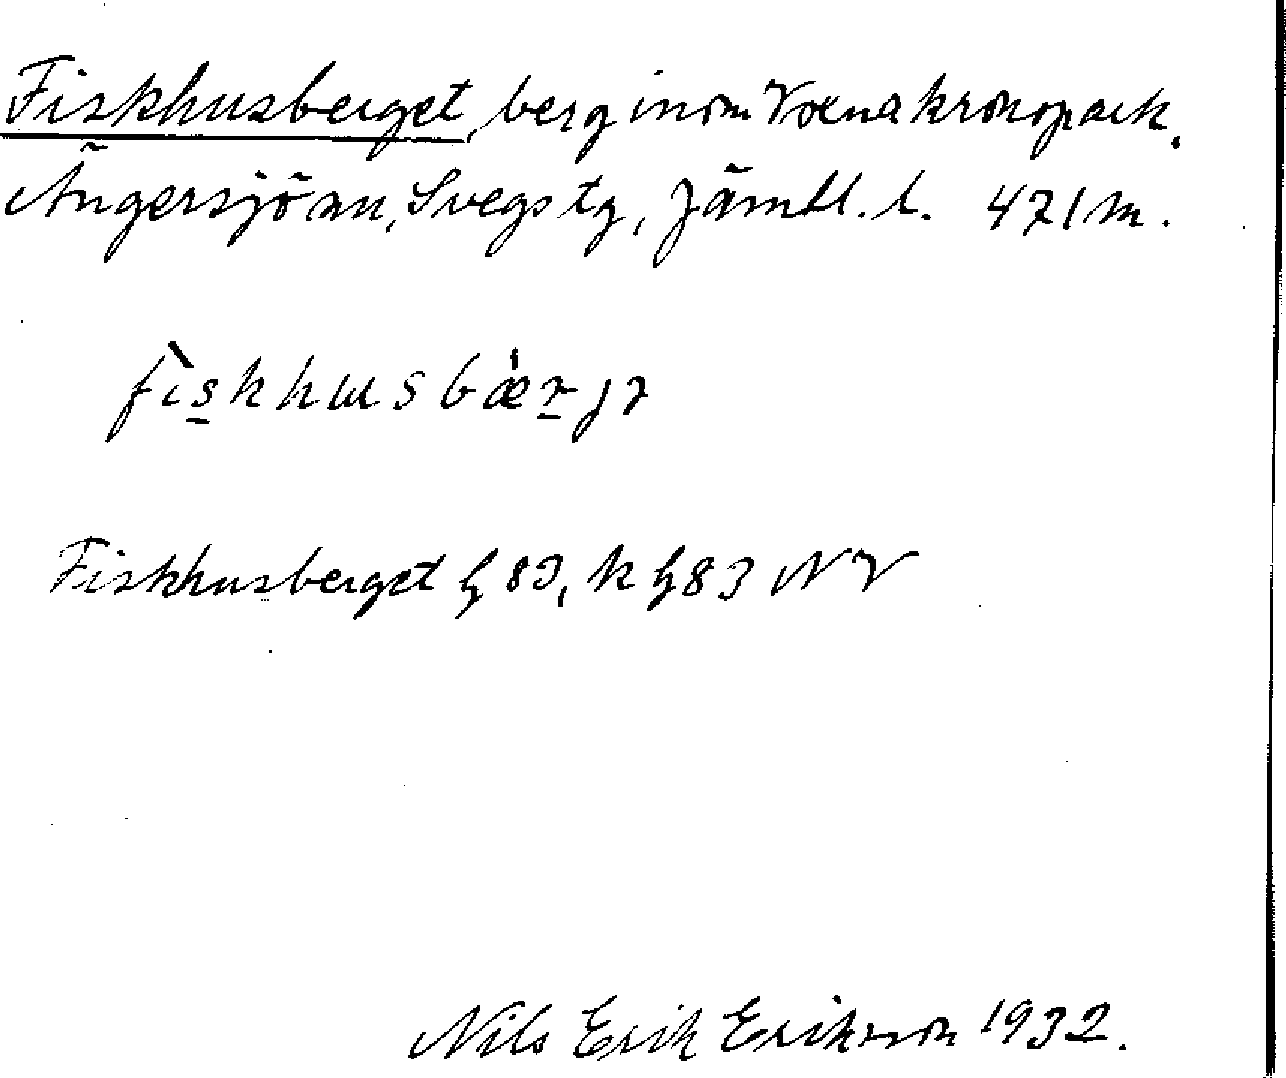 Fiskhusberget, berg inom Voxna kronopark,
Ängersjön, Svegs tg, Jämtl. l. 471 m.
fìskhɯsbæ̀rjɂ
Fiskhusberget h 83, k h 83 NV
Nils Erik Eriksson 1932.